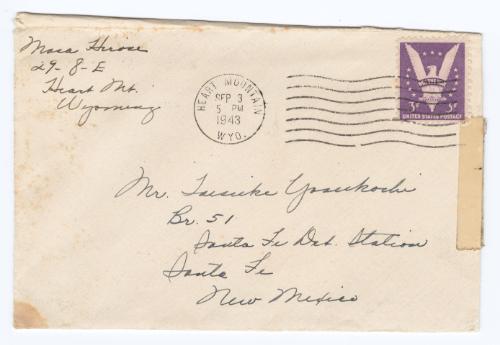 Masa Hirose
29-8-E
Heart Mt.
Wyoming
HEART MOUNTAIN
SEP 3
5 PM
1943
WYO.
3¢ 3¢
UNITED STATES POSTAGE
Mr.
Br. 51
Santa Fe Det. Station
Santa Fe
New Mexico